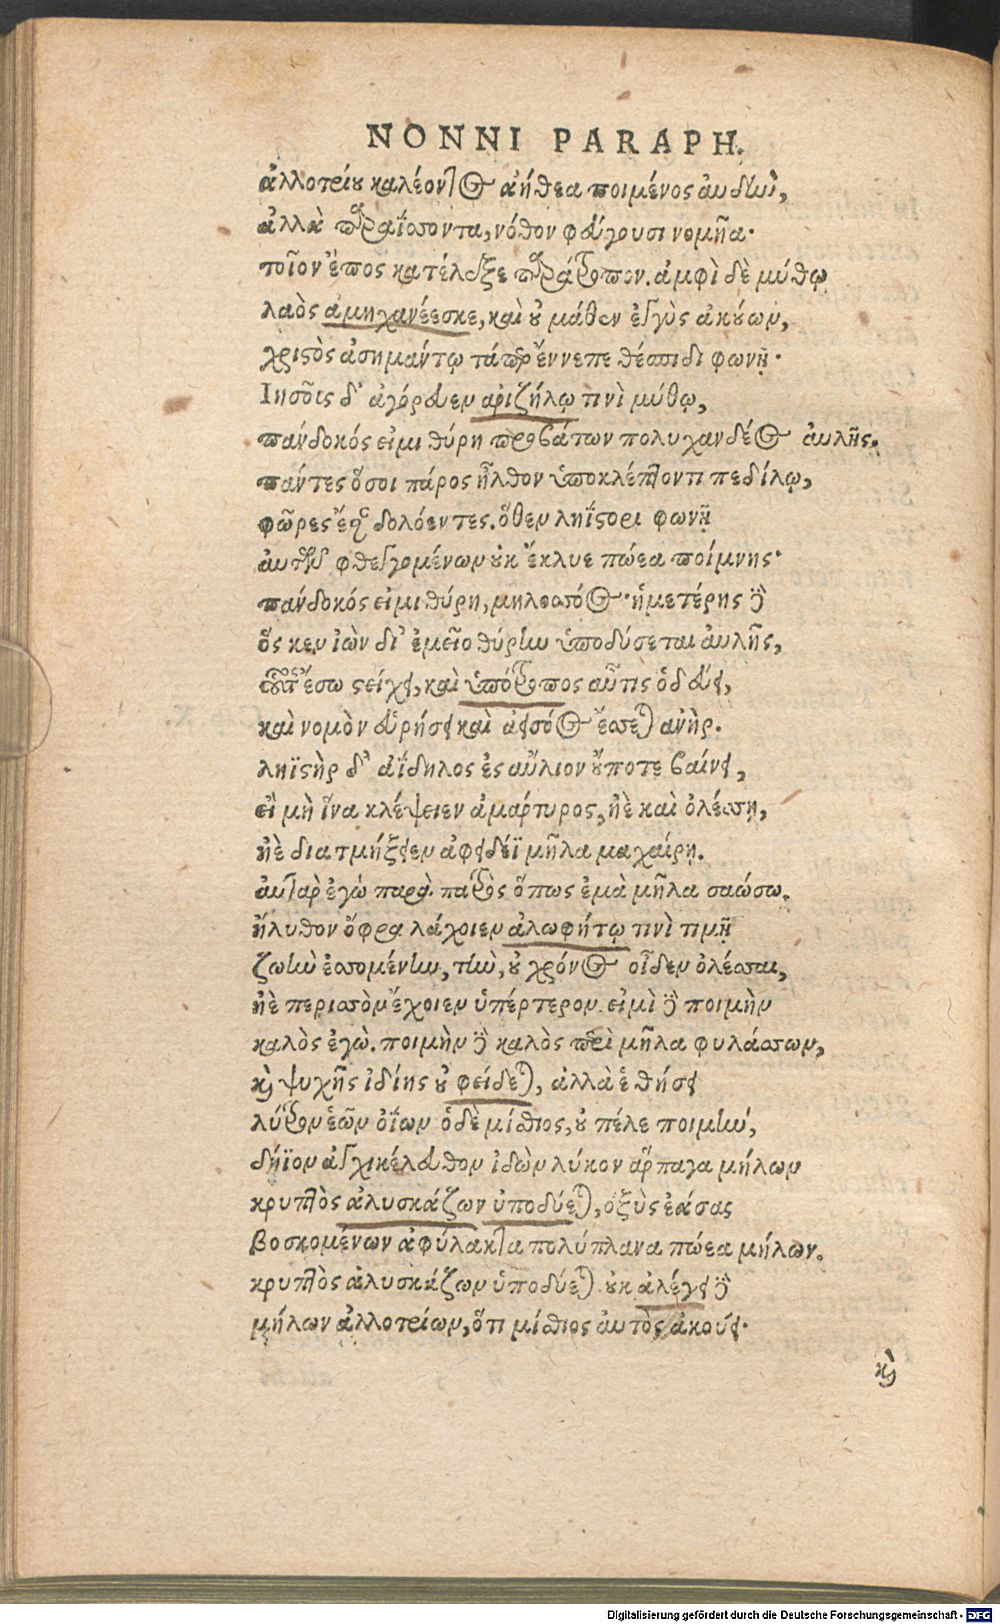 NONNI PARAPH.
ἀλλοτρίου καλέοντος ἀήθεα ποιμένος αὐδὴν,
ἀλλὰ παραΐσσοντα, νόθον φεύγουσι νομῆα·
τοῖον ἔπος κατέλεξε παράτροπον. ἀμφὶ δὲ μύθῳ
λαὸς ἀμηχανέεσκε, καὶ οὐ μάθεν ἐγγὺς ἀκούων,
χριστὸς ἀσημάντῳ τάπερ ἔννεπε θέσπιδι φωνῇ·
Ιησοῦς δ' ἀγόρευεν ἀριζήλῳ τινὶ μύθῳ,
πάνδοκός εἰμι θύρη προβάτων πολυχανδέος αὐλῆς.
πάντες ὅσοι πάρος ἦλθον ὑποκλέπτοντι πεδίλῳ,
φῶρες ἔην δολόεντες. ὅθεν ληΐστορι φωνῇ
αὐτῶν φθεγγομένων οὐκ ἔκλυε πώεα ποίμνης·
πάνδοκός εἰμι θύρη, μηλοσσόος· ἡμετέρης γὸ
ὅς κεν ἰὼν δι' ἐμεῖο θύρην ὑποδύσεται αὐλῆς,
οὗτος ἔσω στείχει, καὶ ὑπότροπος αὖτις ὁδεύει,
καὶ νομὸν εὑρήσει καὶ ἀεισόος ἔσσεται ἀνὴρ.
ληϊστὴρ δ' ἀΐδηλος ἐς αὔλιον οὔποτε βαίνει,
εἰ μὴ ἵνα κλέψειεν ἀμάρτυρος, ἠὲ καὶ ὀλέσσῃ,
ἠὲ διατμήξειεν ἀφειδέϊ μῆλα μαχαίρῃ.
αὐτὰρ ἐγὼ παρὰ πατρὸς ὅπως ἐμὰ μῆλα σαώσω.
ἤλυθον ὄφρα λάχοιεν ἀλωφήτῳ τινὶ τιμῇ
ζωὴν ἐσσομένην, τὴν, οὐ χρόνος οἶδεν ὀλέσσαι,
ἠὲ περισσὸν ἔχοιεν ὑπέρτερον. εἰμὶ δὲ ποιμὴν
καλὸς ἐγὼ. ποιμὴν δὲ καλὸς περὶ μῆλα φυλάσσων,
καὶ ψυχῆς ἰδίης οὐ φείδεται, ἀλλὰ ἑ θήσει
λύτρον ἑῶν ὀΐων ὁ δὲ μίσθιος, οὐ πέλε ποιμὴν,
δήϊον ἀγχικέλευθον ἰδὼν λύκον ἅρπαγα μήλων
κρυπτὸς ἀλυσκάζων ὑποδύεται, ὀξὺς ἐάσας
βοσκομένων ἀφύλακτα πολύπλανα πώεα μήλων.
κρυπτὸς ἀλυσκάζων ὑποδύεται οὐκ ἀλέγει γὸ
μήλων ἀλλοτρίων, ὅτι μίσθιος αὐτὸς ἀκούει·
καὶ